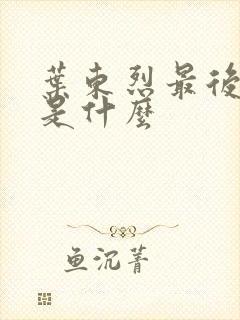 葉東烈最後
是什麼
鱼沉菁